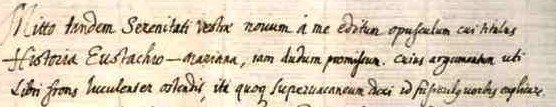 Mitto tandem Serenitati Vestræ novum à me editum opusculum cui titulus
Historia Eustachio-Mariana, iam dudum promissum. cuius argumentum uti
Libri frons luculenter ostendit, ita quoq supervacaneum duxi id fusius verbis explicare.